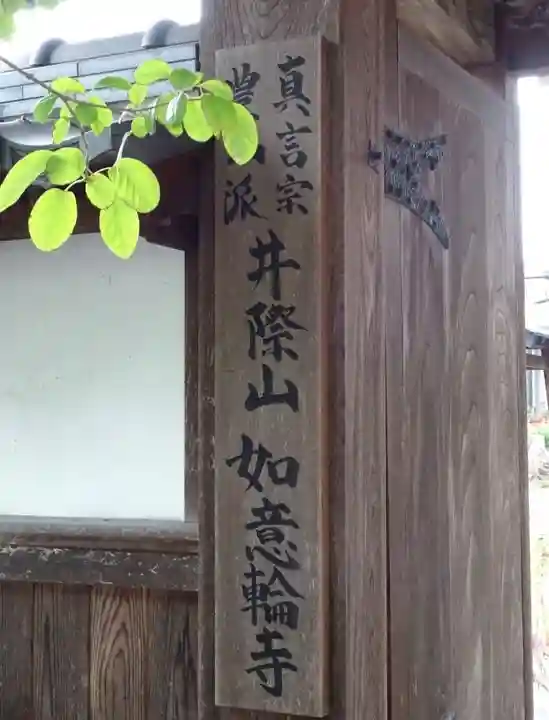 真言宗
豊山派
井際山 如意輪寺